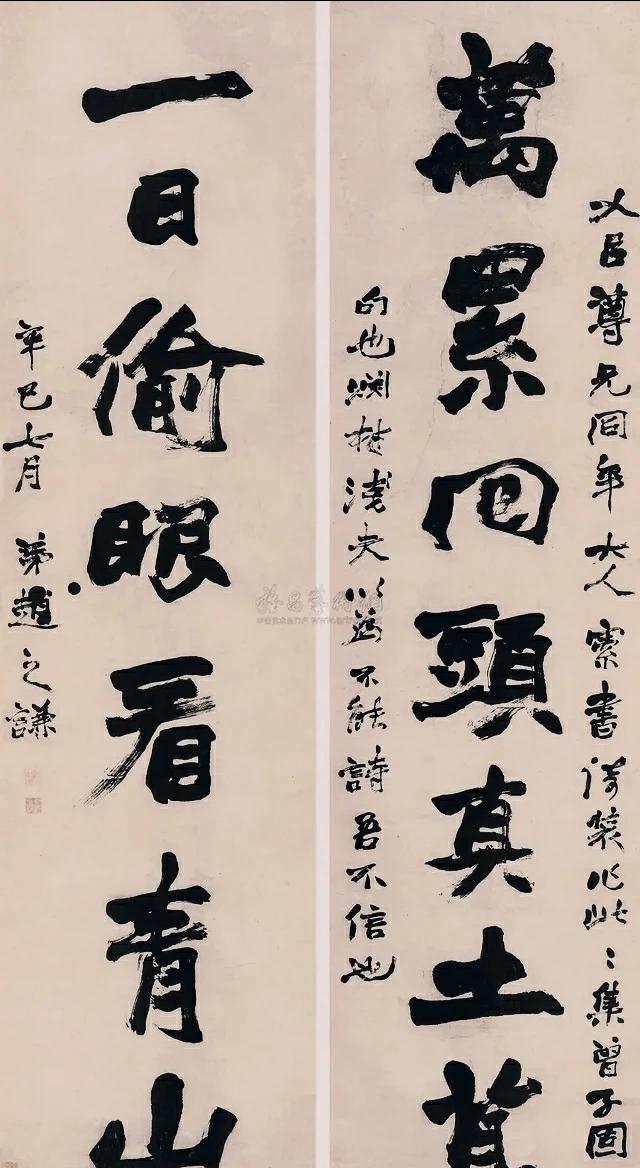 吕尊兄同年大人索書倚裝作此〻集曾子固
萬累回頭真土
句也材淺夫以為不能詩吾不信也
一日偷眼看青山
辛巳七月 弟趙之謙